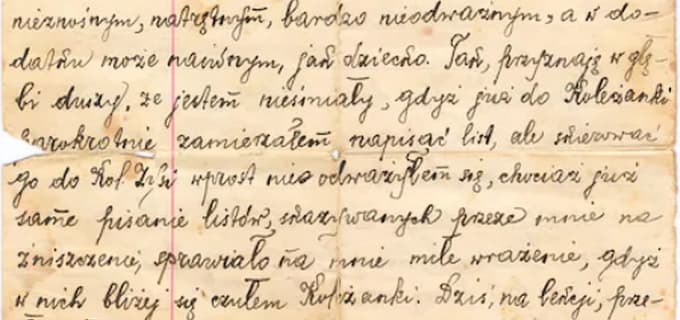 nieznośnym, natrętnym, bardzo nieodważnym, a w do-
datku może naiwnym, jak dziecko. Tak, przyznaję w głę-
bi duszy, że jestem nieśmiały, gdyż już do Koleżanki
parokrotnie zamierzałem napisać list, ale skierować
go do Kol. Zysi wprost nie odważyłem się, chociaż już
same pisanie listów, skazywanych przeze mnie na
zniszczenie, sprawiało na mnie miłe wrażenie, gdyż
w nich bliżej się czułem Koleżanki. Dziś, na lekcji, prze-